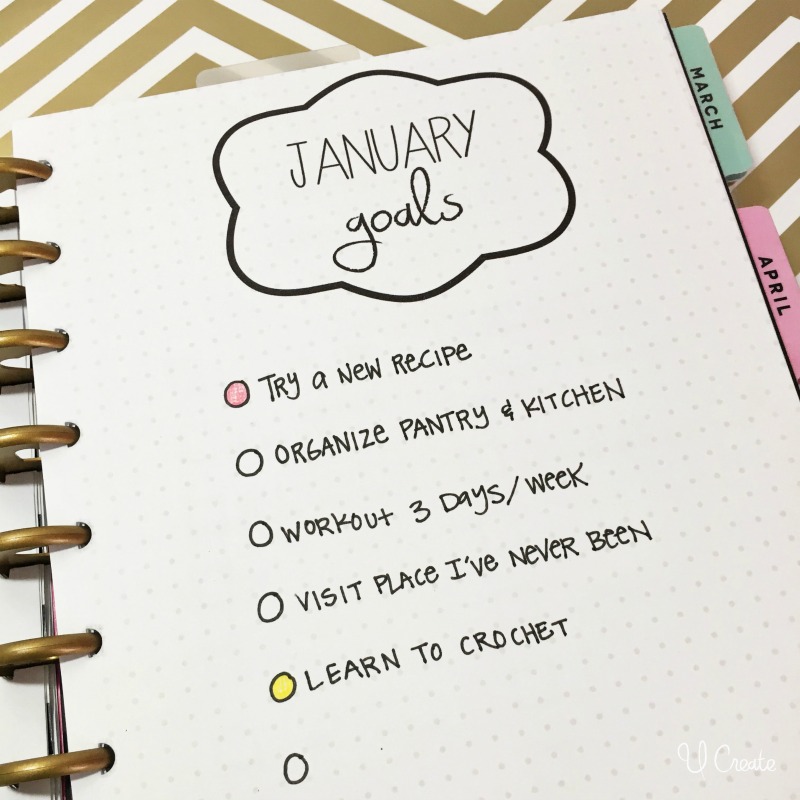 JANUARY
goals
TRY a NEW RECIPE
ORGANIZE PANTRY & KITCHEN
WORKOUT 3 Days/Week
VISIT PLACE I'VE NEVER BEEN
LEARN TO CROCHET
MARCH
APRIL
U Create